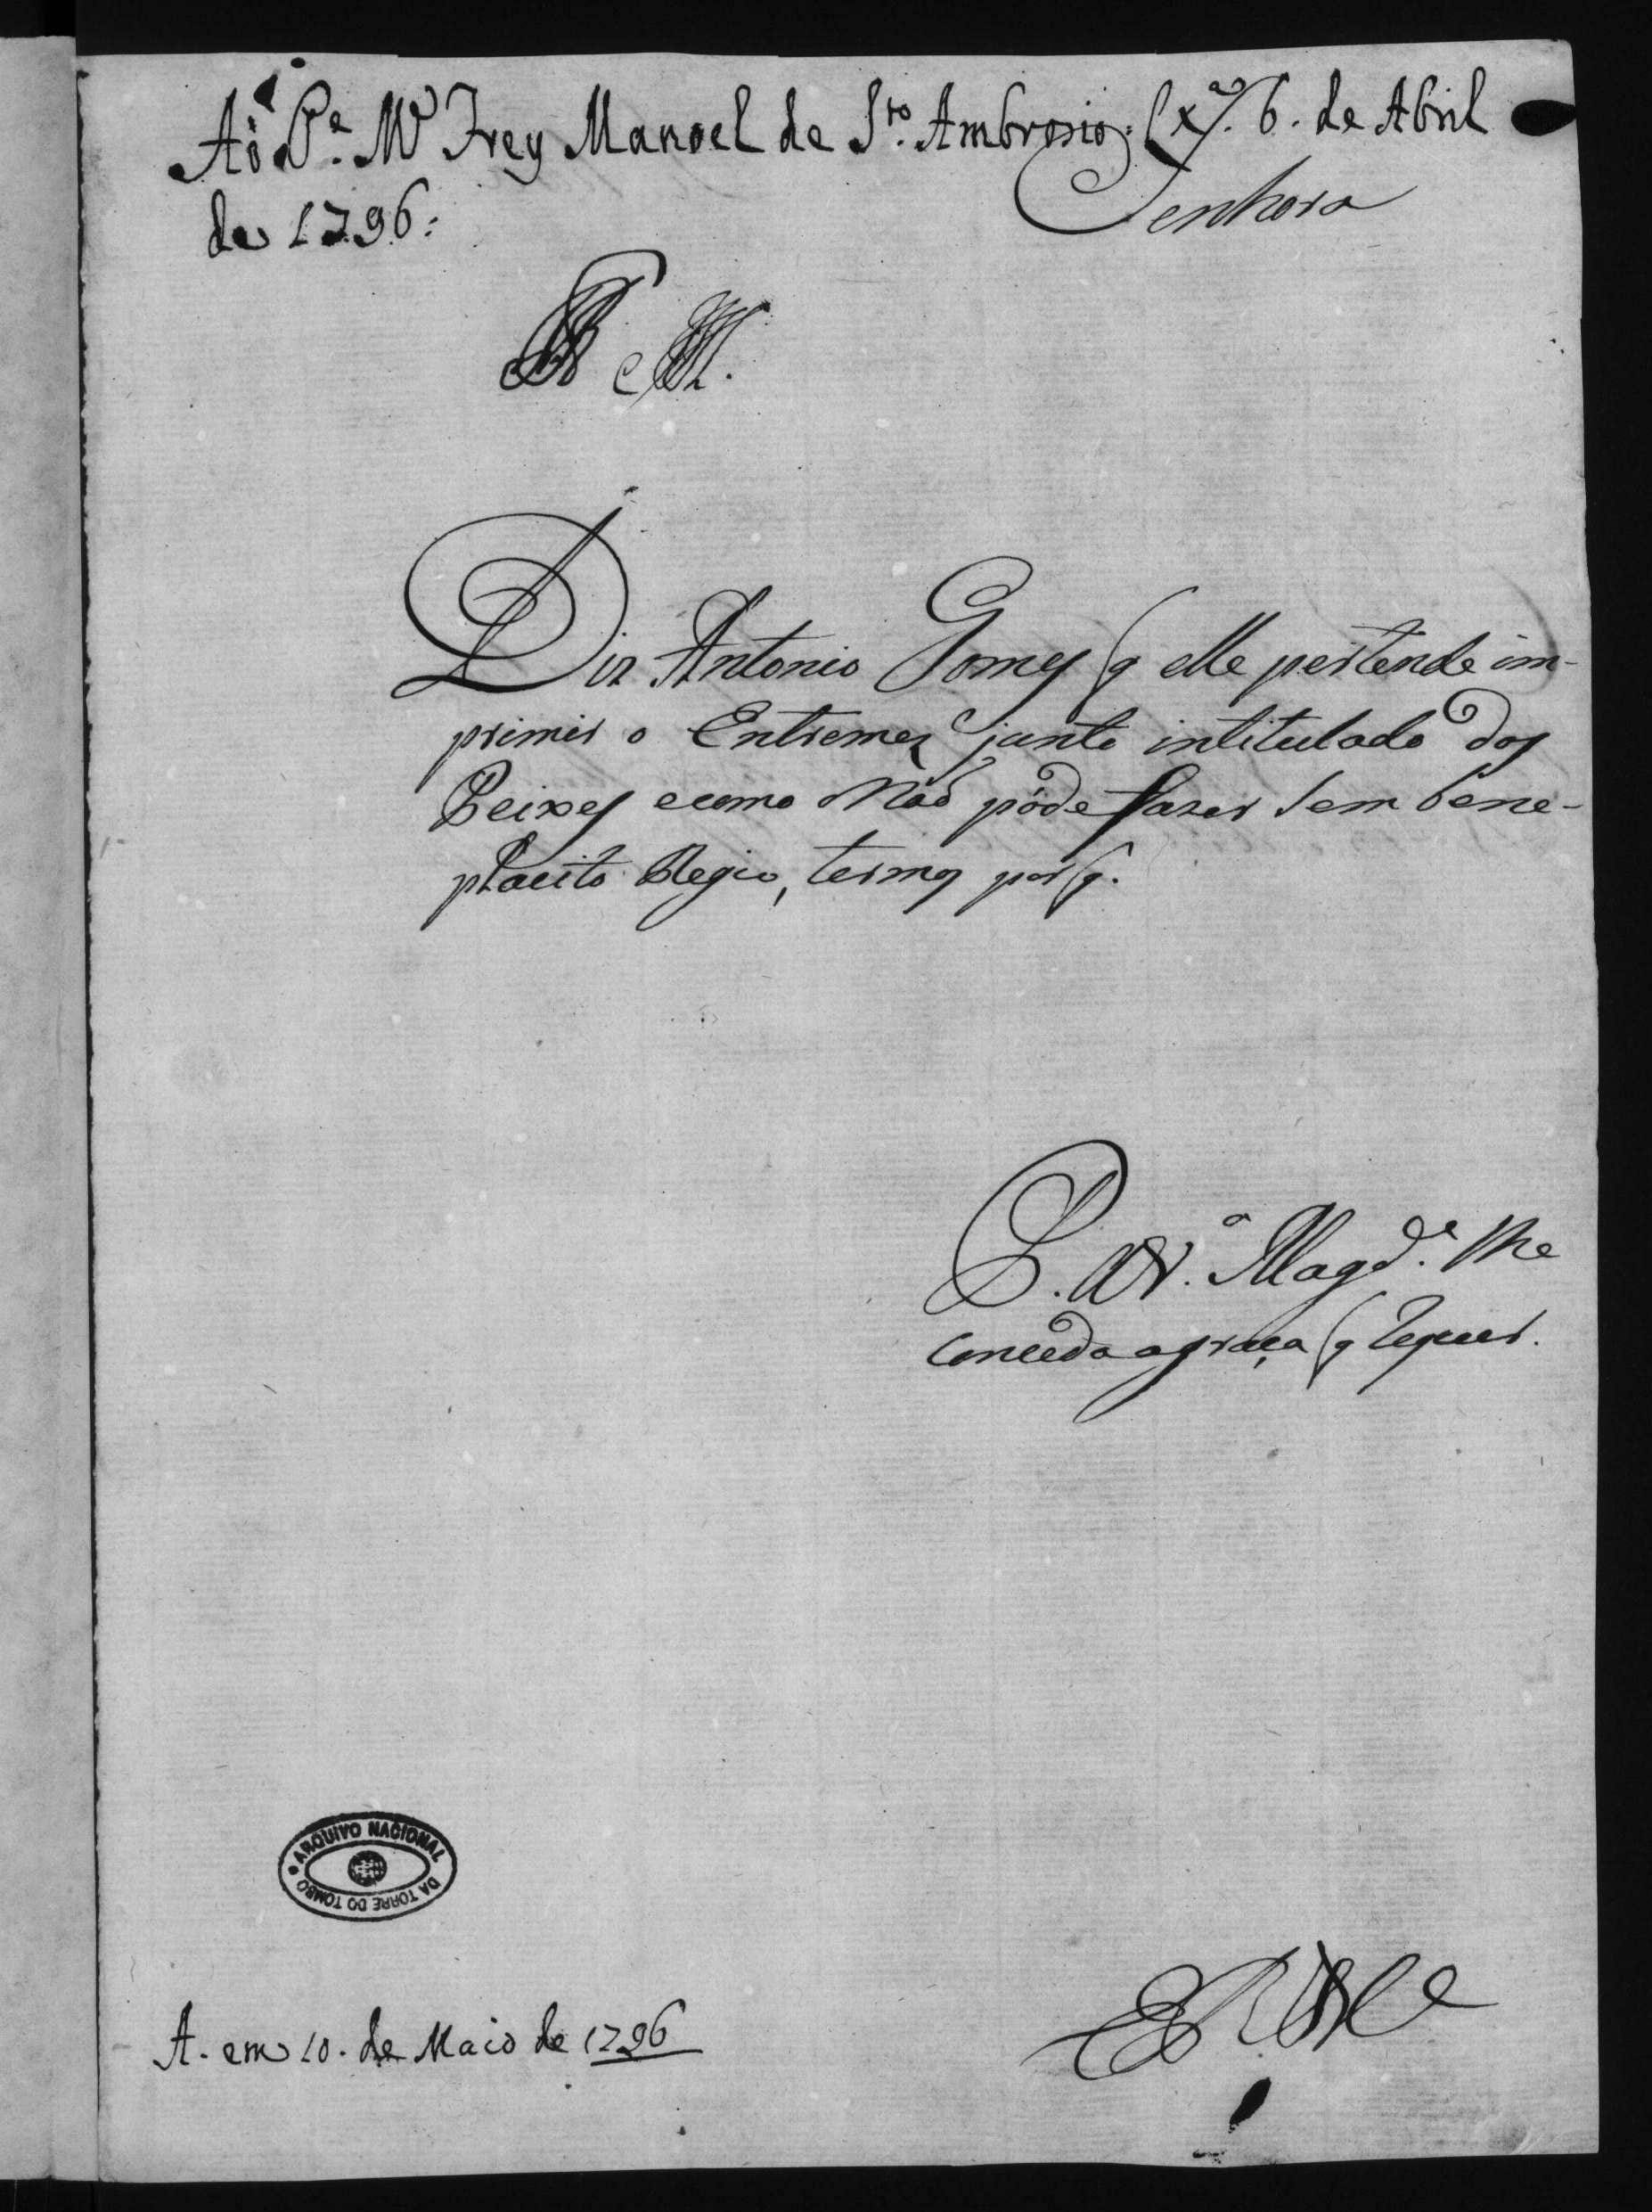 Ao P.e M.e Frey Manoel de S.to Ambrosio: Lx.a 6. de Abril
de 1796:
Senhora
Diz Antonio Gomes q elle pertende im-
primir o Entremez junto intitulado dos
Peixes e como Naõ póde fazer sem bene-
placito Regio, termos porq.
P. a V. Mag.de lhe
conceda a graça q requer.
ARQUIVO NACIONAL
DA TORRE DO TOMBO
A. em 10. de Maio de 1796
E R M.ce